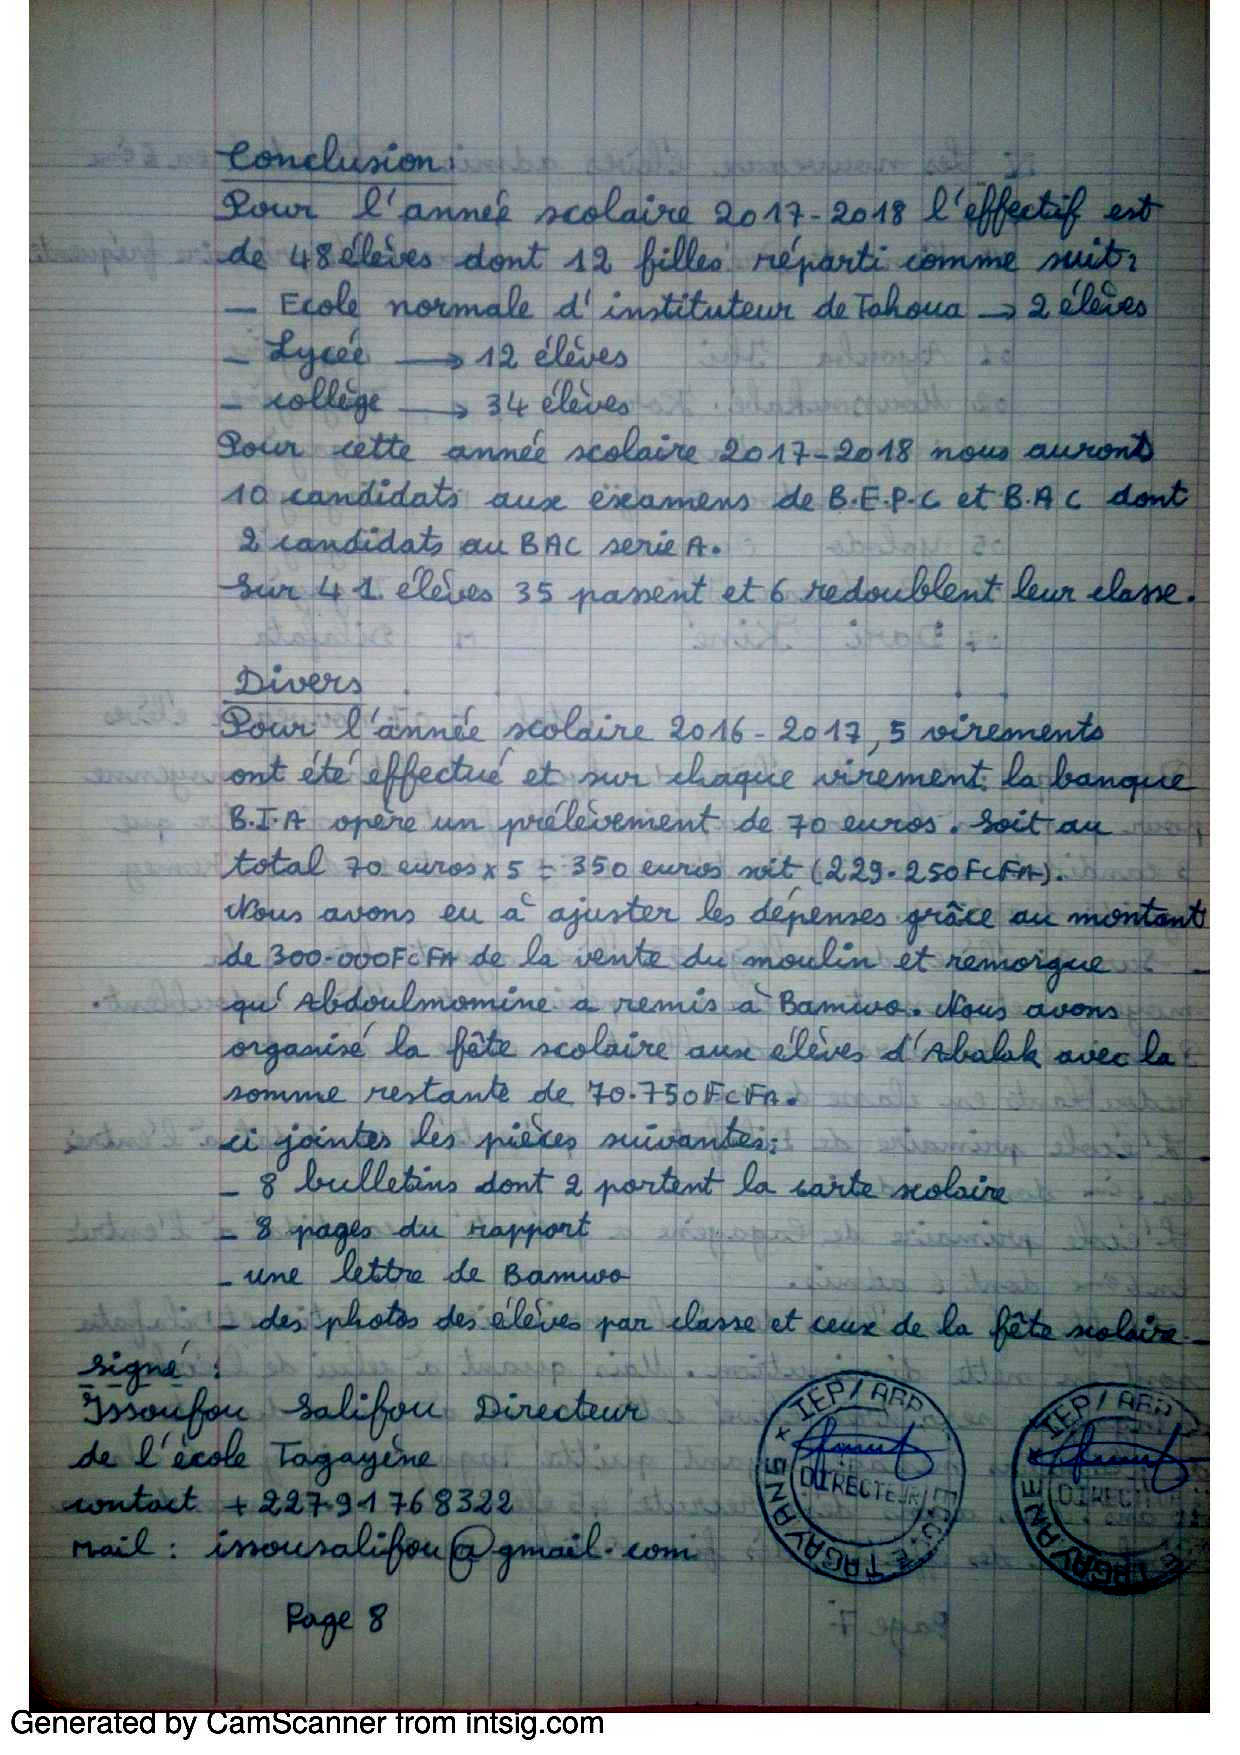 Conclusion:
Pour l'année scolaire 2017-2018 l'effectif est
de 48 élèves dont 12 filles réparti comme suit:
- Ecole normale d'instituteur de Tahoua → 2 élèves
- Lycée → 12 élèves
- collège → 34 élèves
Pour cette année scolaire 2017-2018 nous auront
10 candidats aux examens de B.E.P.C et B.A.C dont
2 candidats au BAC serie A.
Sur 41 élèves 35 passent et 6 redoublent leur classe.
Divers
Pour l'année scolaire 2016-2017, 5 virements
ont été effectué et sur chaque virement la banque
B.I.A opère un prélèvement de 70 euros. Soit au
total 70 euros x 5 = 350 euros soit (229.250FCFA).
Nous avons eu à ajuster les dépenses grâce au montant
de 300.000FCFA de la vente du moulin et remorgue
qu'Abdoulmomine a remis à Bamwo. Nous avons
organisé la fête scolaire aux élèves d'Abalak avec la
somme restante de 70.750FCFA.
ci jointes les pièces suivantes:
- 8 bulletins dont 2 portent la carte scolaire
- 8 pages du rapport
- une lettre de Bamwo
- des photos des élèves par classe et ceux de la fête scolaire
Signé:
Issoufou Salifou Directeur
de l'école Tagayène
contact +22791768322
Mail: issousalifou@gmail.com
IEP/ARP
DIRECTEUR
TAGAYANE
IEP/ARP
TAGAYANE
Page 8
Generated by CamScanner from intsig.com